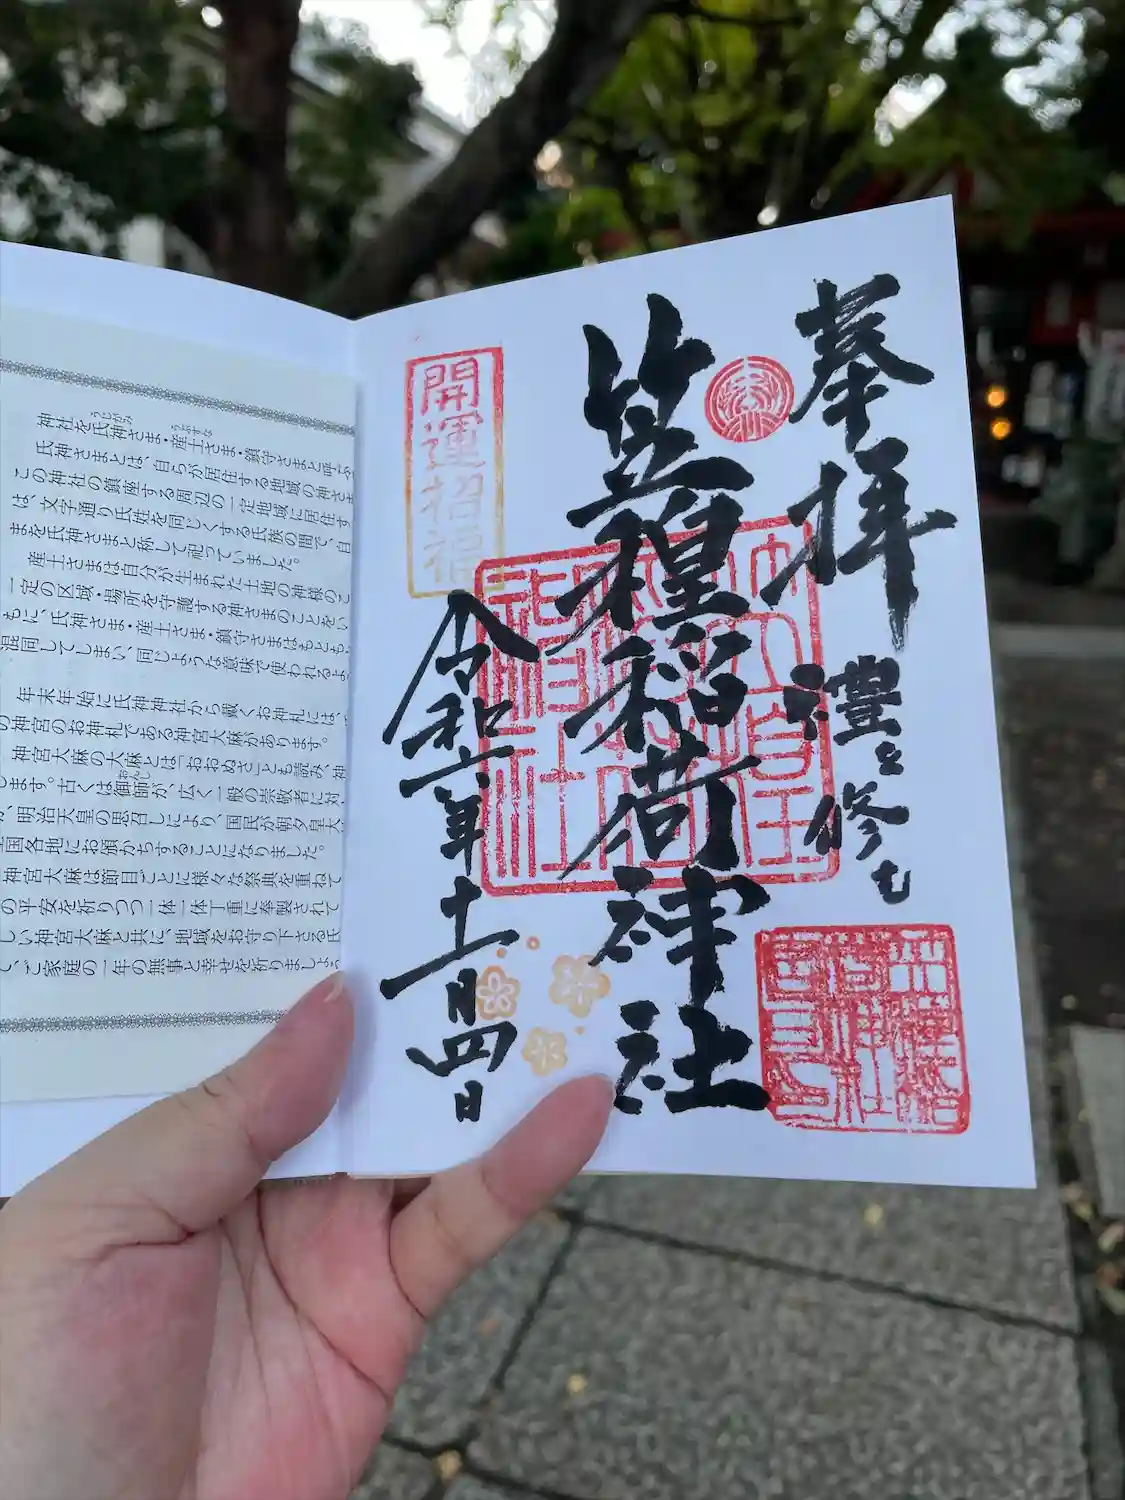 奉拝
禮を修む
笠䅣稲荷神社
開運招福
令和六年十一月四日
神社を氏神さま・産土さま・鎮守さまと呼ぶ
氏神さまとは、自らが居住する地域の神さま
この神社の鎮座する周辺の一定地域に居住す
は、文字通り氏姓を同じくする氏族の間で、自
まを氏神さまと称して祀っていました。
産土さまは自分が生まれた土地の神様のこ
一定の区域・場所を守護する神さまのことをい
もに、氏神さま・産土さま・鎮守さまはもとも
混同してしまい、同じような意味で使われるよ
年末年始に氏神神社から戴くお神札には、
の神宮のお神札である神宮大麻があります。
神宮大麻の大麻とは「おおぬさ」とも読み、神
します。古くは御師が、広く一般の崇敬者に対
が、明治天皇の思召しにより、国民が朝夕皇大
全国各地にお頒かちすることになりました。
神宮大麻は節目ごとに様々な祭典を重ねて
の平安を祈りつつ一体一体丁重に奉製されて
しい神宮大麻と共に、地域をお守り下さる氏
て、ご家庭の一年の無事と幸せを祈りましょう